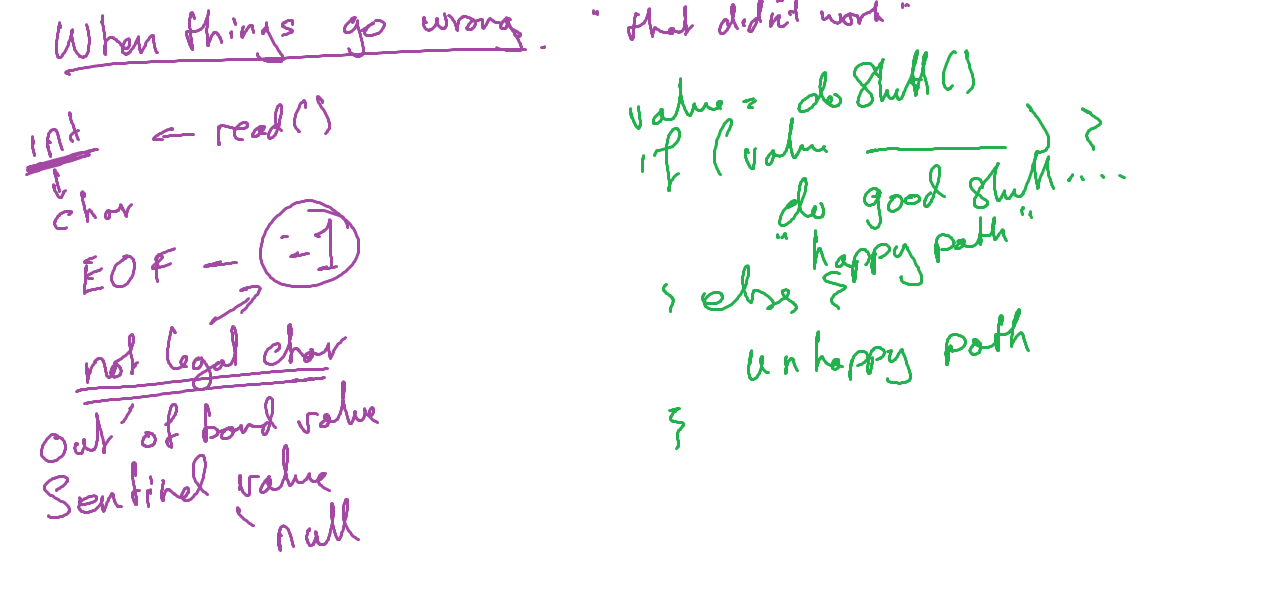 When things go wrong.
int ← read()
char
EOF - -1
not legal char
Out of band value
Sentinel value
null
"that didn't work"
value = doStuff()
if (value ______ ) {
do good stuff ....
"happy path"
} else {
unhappy path
}